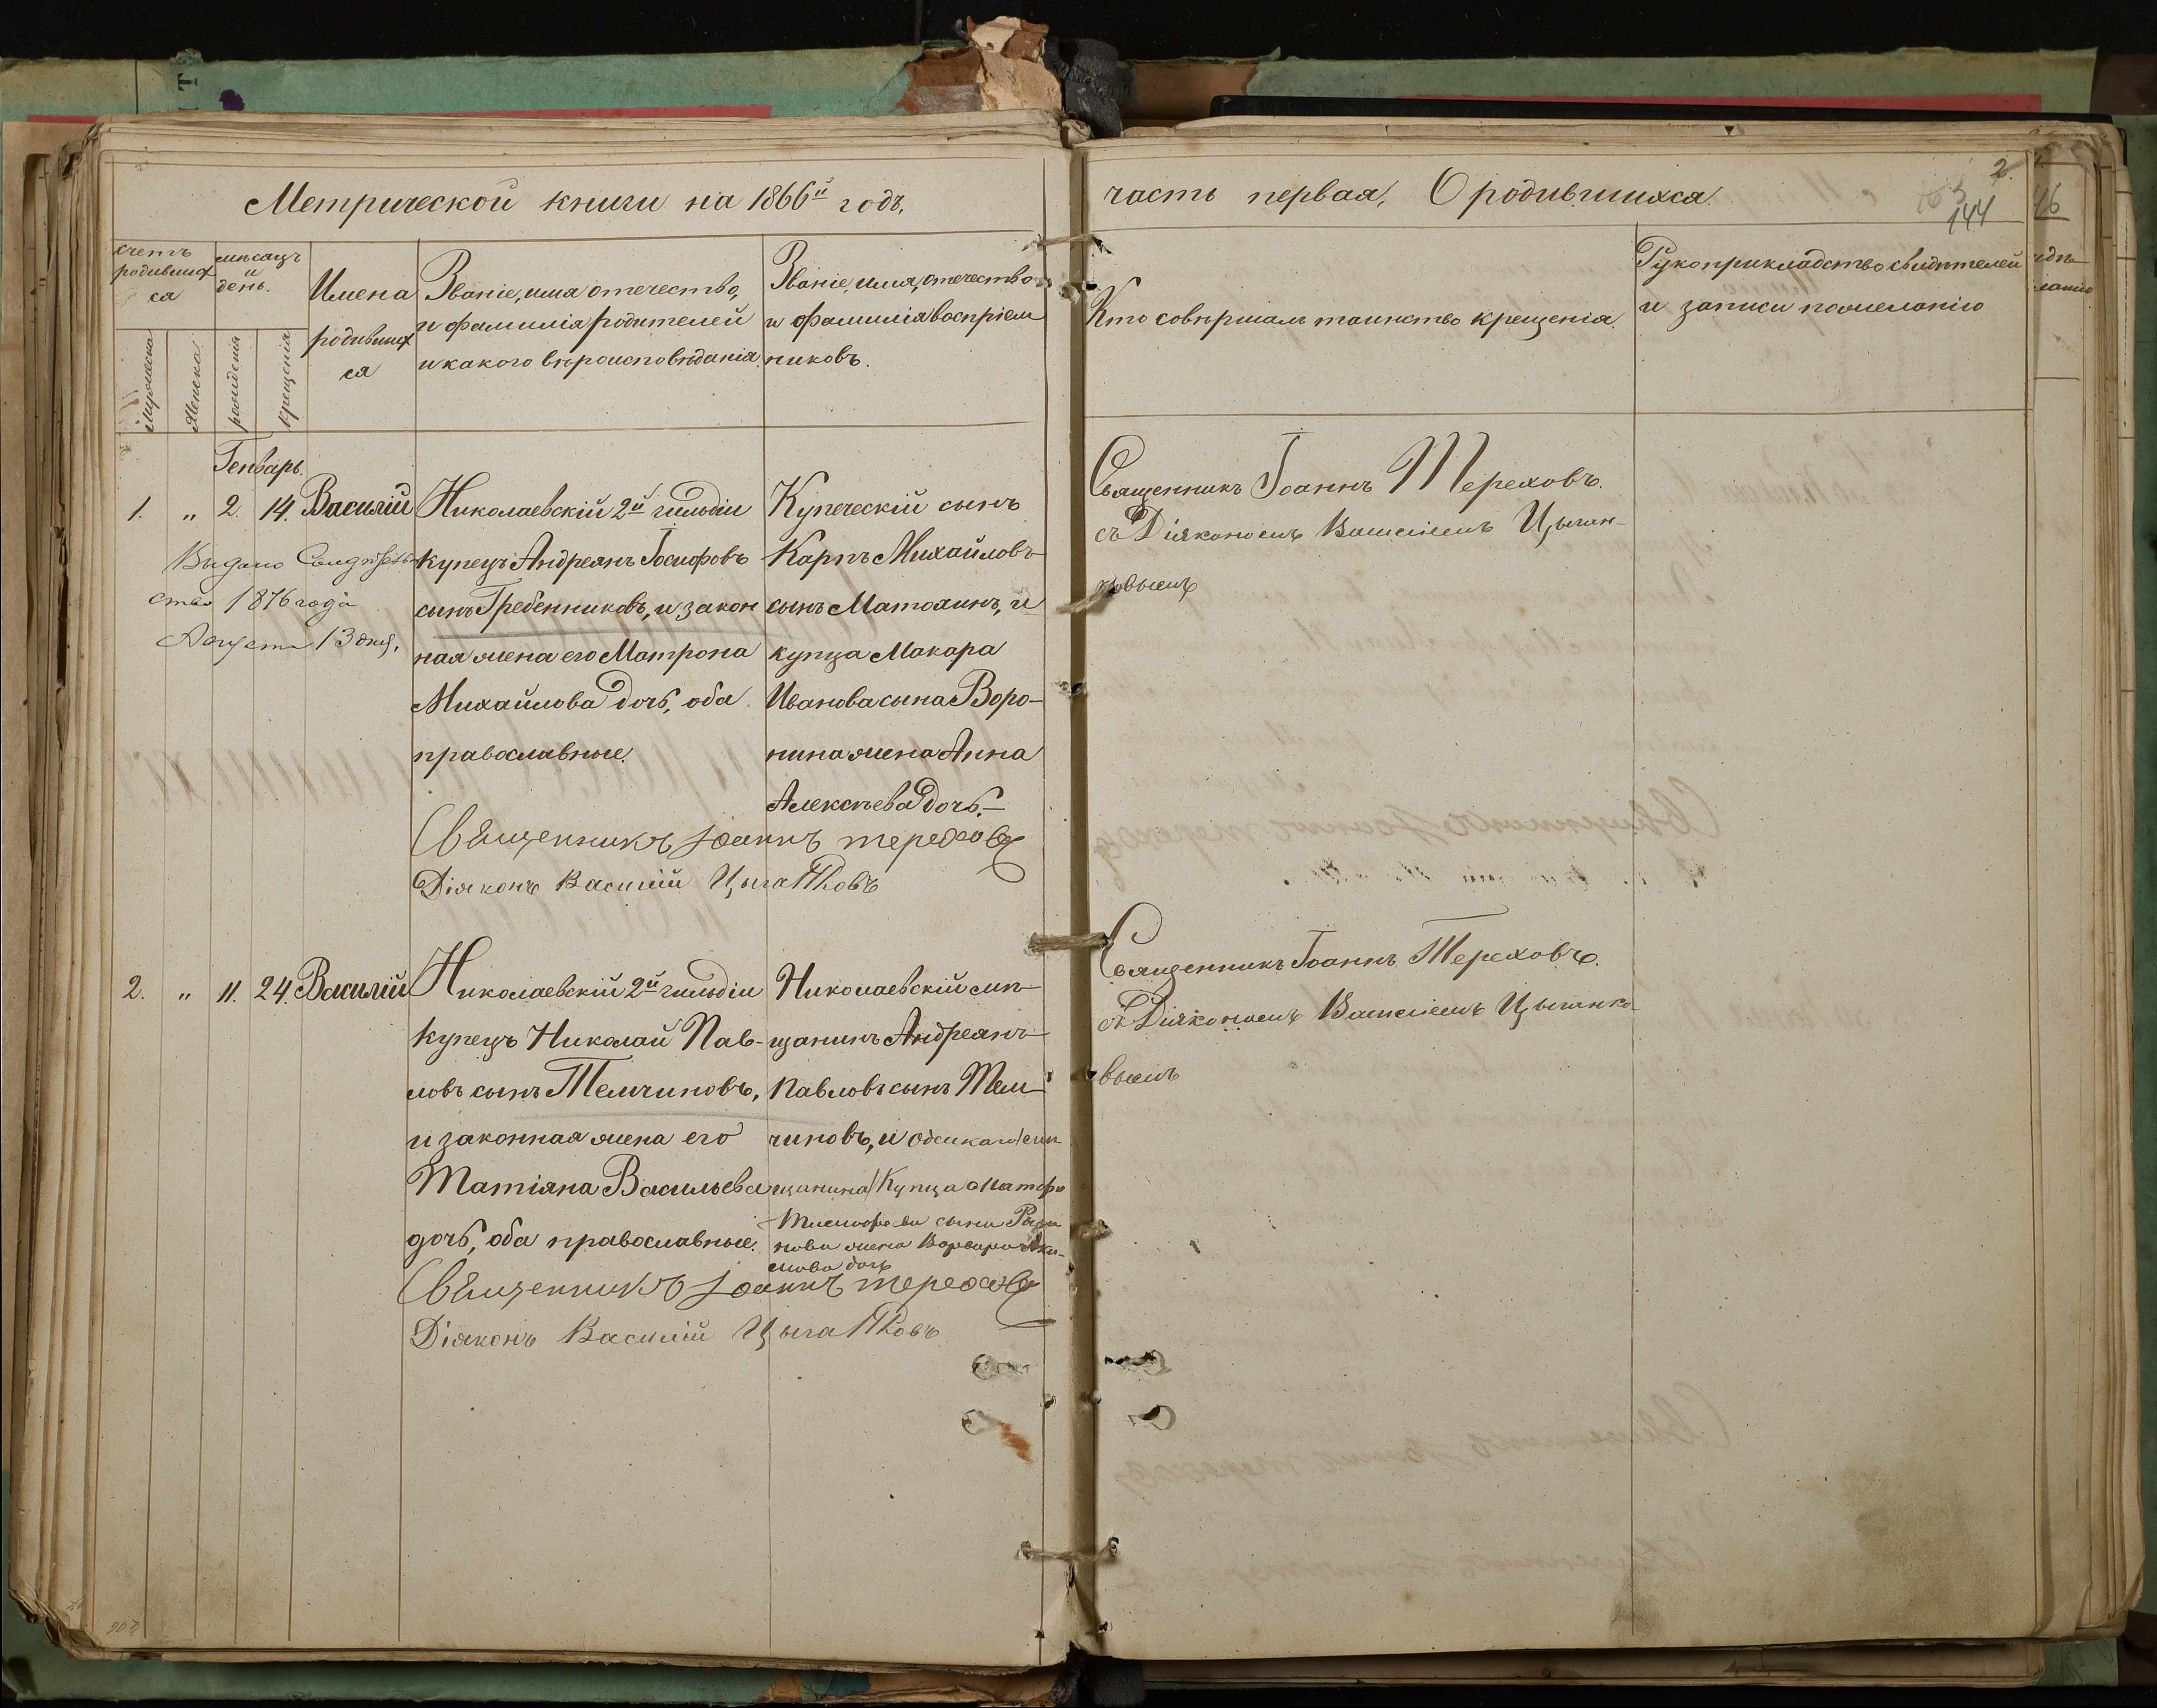 Метрической книги на 1866й годъ,
часть первая, О родившихся
2.
144
46
счетъ родивших
ся
мѣсяцъ
и
день.
Мужеска
Женска
рожденія
крещенія
Имена
родивших
ся
Званіе, имя отечество,
и фамилія родителей
и какого вѣроисповѣданія.
Званіе, имя, отечество
и фамилія воспріем
никовъ.
Кто совѣршалъ таинство крещенія.
Рукоприкладство свидѣтелей
и записи пожеланію
Генварь.
1. „ 2. 14. Василій
Николаевскій 2й гильдіи
купецъ Андреянъ Іосифовъ
сынъ Гребенниковъ, и закон
ная жена его Матрона
Михайлова дочь, оба
православные.
Купеческій сынъ
Карпъ Михайловъ
сынъ Матохинъ, и
купца Макара
Иванова сына Воро-
нина жена Анна
Алексѣева дочь.
Выдано Свидѣтель
ство 1876 года
Августа 13 дня.
Священникъ Іоаннъ Тереховъ
Діяконъ Василій Цыганковъ
Священникъ Іоаннъ Тереховъ.
съ Діякономъ Василіемъ Цыган-
ковымъ
2. „ 11. 24. Василій
Николаевскій 2й гильдіи
купецъ Николай Пав-
ловъ сынъ Темчиновъ,
и законная жена его
Татіяна Васильева
дочь, оба православные.
Николаевскій мѣ-
щанинъ Андреянъ
Павловъ сынъ Тем-
чиновъ, и
щанина) Купца
сына
нова жена Варвара Яки-
мова дочь
Священникъ Іоаннъ Тереховъ
Діяконъ Василій Цыганковъ
Священникъ Іоаннъ Тереховъ.
съ Діякономъ Василіемъ Цыганко-
вымъ